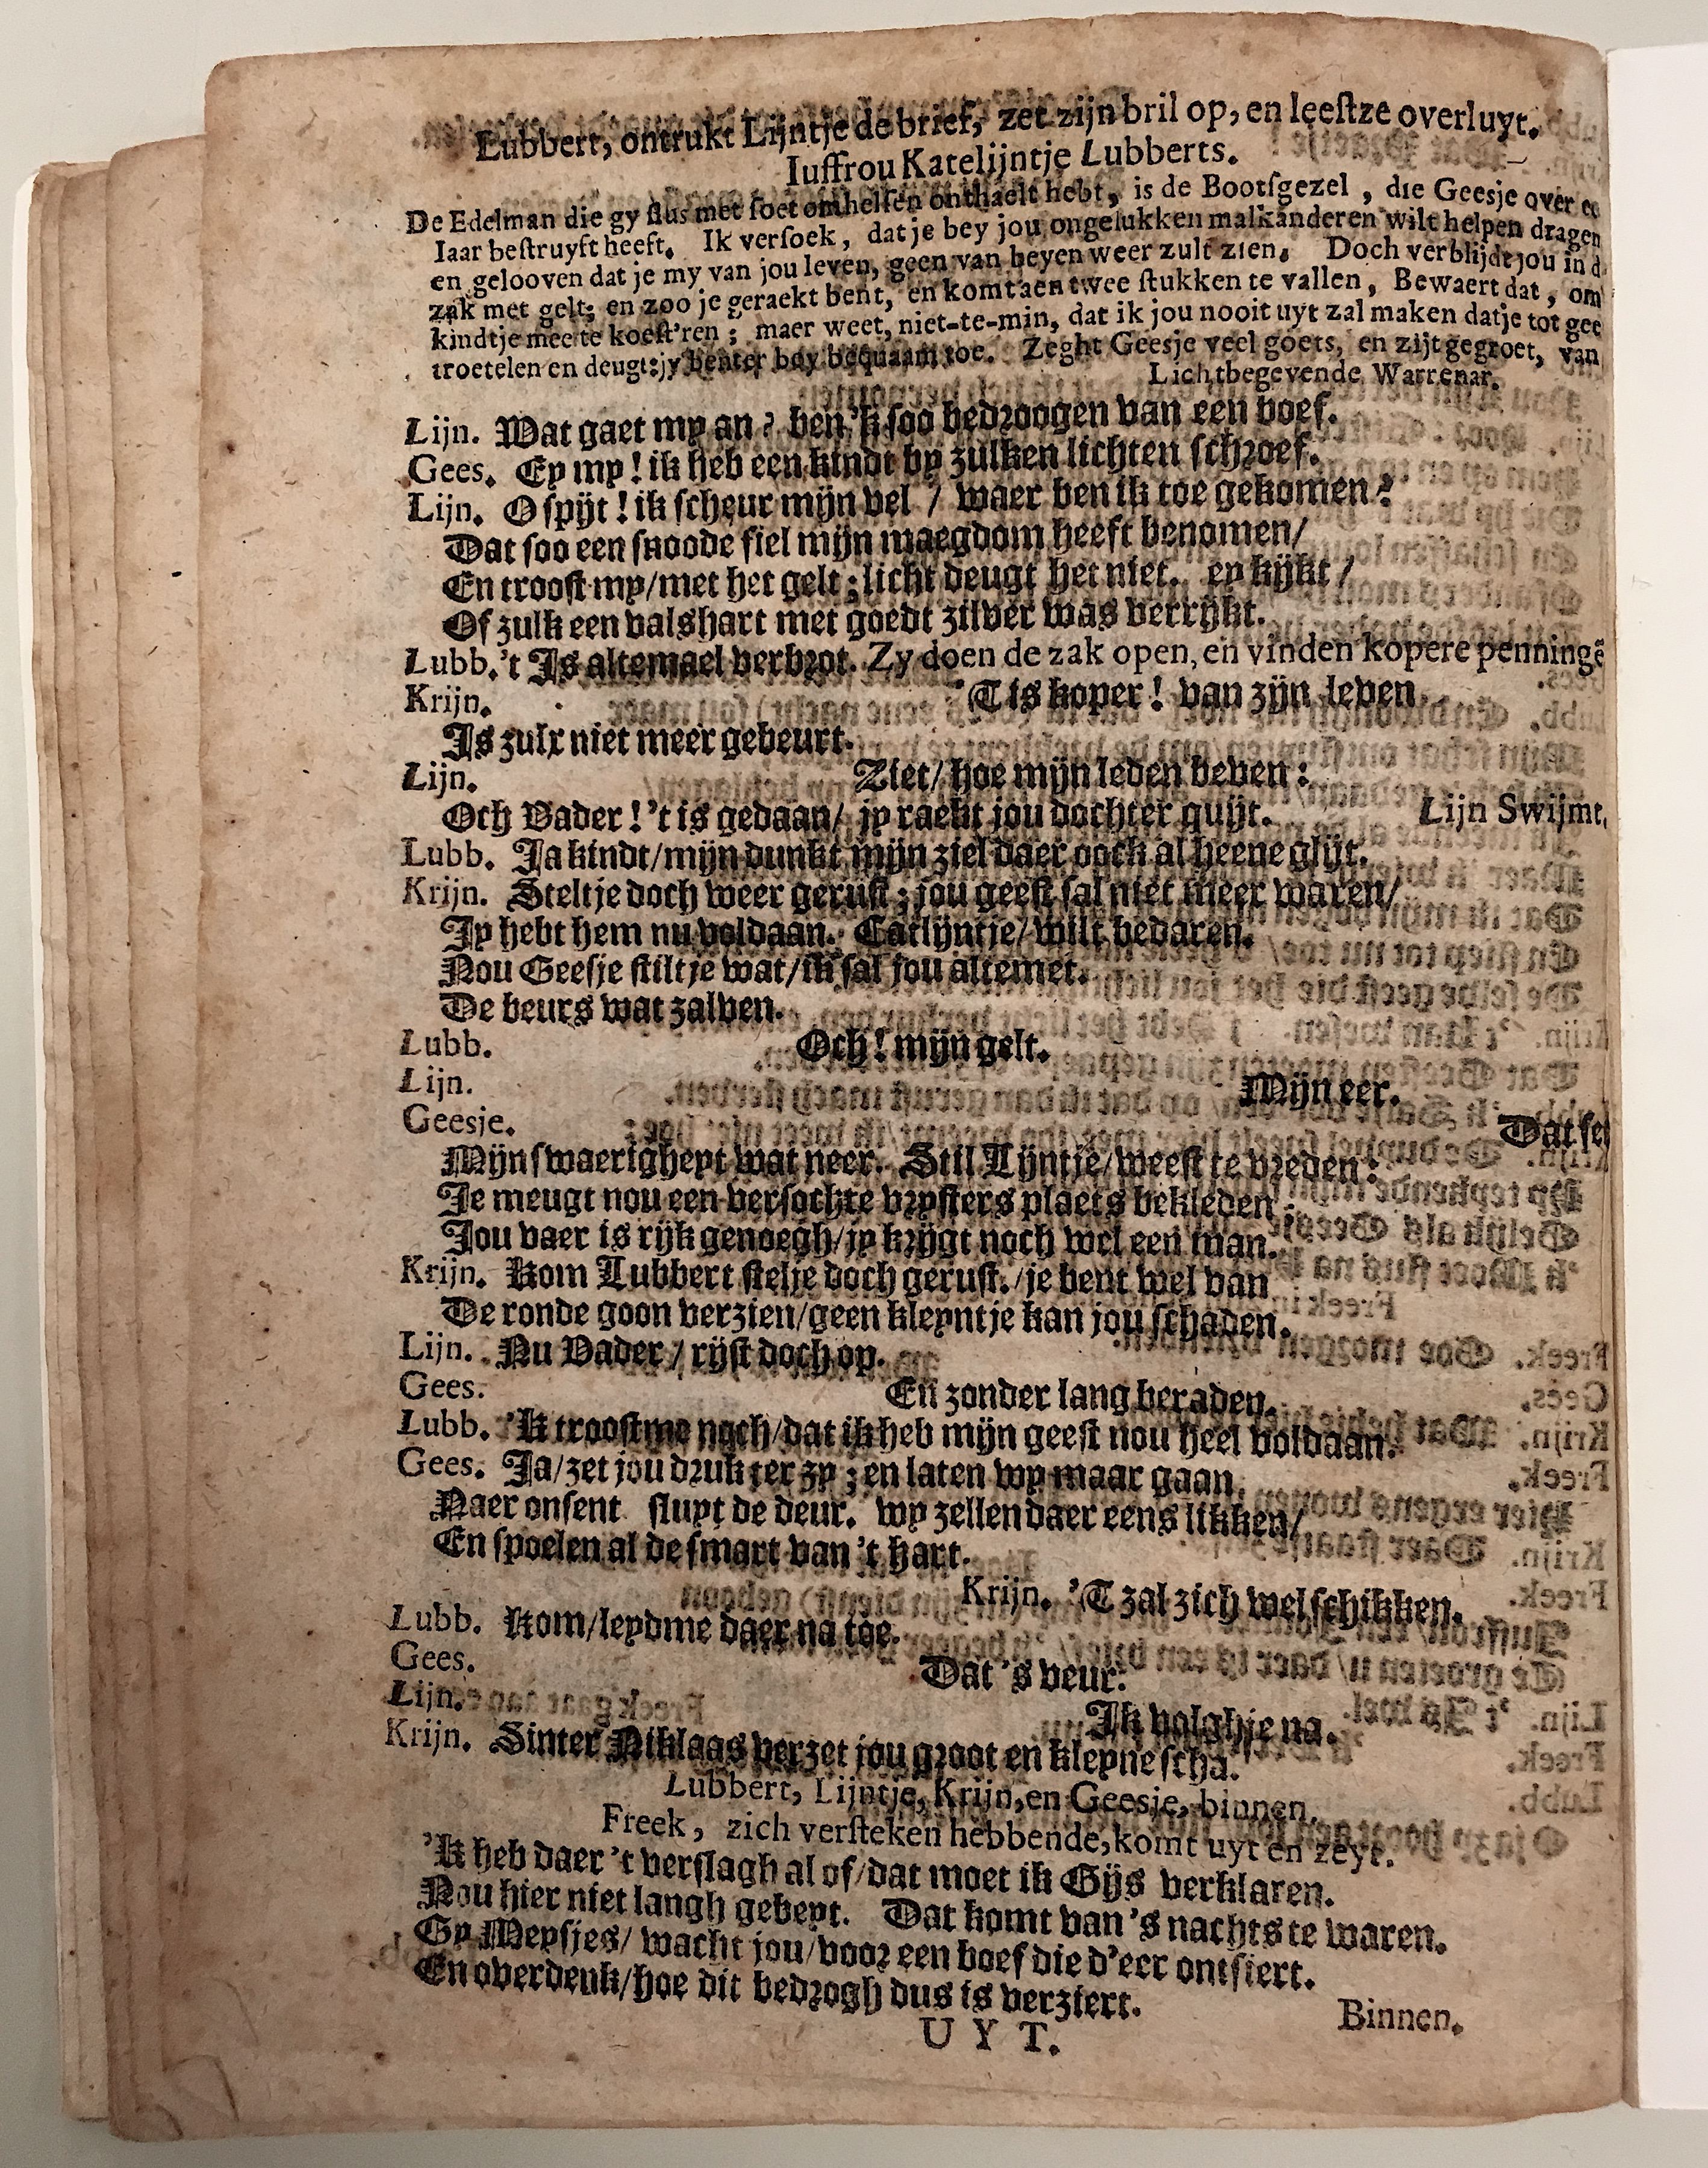 Lubbert, ontrukt Lijntje de brief, zet zijn bril op, en leeſtze overluyt.
Iuffrou Katelijntje Lubberts.
De Edelman die gy flus met ſoet omhelſen onthaelt hebt, is de Bootſgezel, die Geesje over ee
Iaar beſtruyft heeft. Ik verſoek, dat je bey jou ongelukken malkanderen wilt helpen dragen
en gelooven dat je my van jou leven, geen van beyen weer zult zien. Doch verblijdt jou in d
zak met gelt; en zoo je geraekt bent, en komt aen twee ſtukken te vallen, Bewaert dat, om
kindtje mee te koeſt'ren; maer weet, niet-te-min, dat ik jou nooit uyt zal maken datje tot gee
troetelen en deugt: jy benter bey bequaam toe. Zeght Geesje veel goets, en zijt gegroet, van
Lichtbegevende Warrenar.
Lijn. Wat gaet my an? ben 'k ſoo bedroogen van een boef.
Gees. Ey my! ik heb een kindt by zulken lichten ſchroef.
Lijn. O ſpijt! ik ſcheur mijn vel / waer ben ik toe gekomen?
Dat ſoo een ſnoode fiel mijn maegdom heeft benomen/
En trooſt my/met het gelt; licht deugt het niet. ey kijkt /
Of zulk een valshart met goedt zilver was verrijkt.
Lubb. 't Is altemael verbrot. Zy doen de zak open, en vinden kopere penningē
Krijn. 'T is koper! van zijn leven
Is zulx niet meer gebeurt.
Lijn. Ziet/ hoe mijn leden beven:
Och Vader! 't is gedaan/ jy raekt jou dochter quijt. Lijn Swijmt.
Lubb. Ja kindt/mijn dunkt mijn ziel daer oock al heene glijt.
Krijn. Steltje doch weer geruſt; jou geeſt ſal niet meer waren/
Jy hebt hem nu voldaan. Catlijntje/ wilt bedaren.
Nou Geesje ſtiltje wat/ik ſal jou altemet.
De beurs wat zalven.
Lubb. Och! mijn gelt.
Lijn. Mijn eer.
Geesje. Dat ſet
Mijn ſwaerigheyt wat neer. Stil Lijntje/weeſt te vreden:
Je meugt nou een verſochte vryſters plaets bekleden
Jou vaer is rijk genoegh/jy krijgt noch wel een man.
Krijn. Kom Lubbert ſtelje doch geruſt. /je bent wel van
De ronde goon verzien/geen kleyntje kan jou ſchaden.
Lijn. Nu Vader / rijſt doch op.
Gees. En zonder lang beraden.
Lubb. 'K trooſtme noch/dat ik heb mijn geeſt nou heel voldaan.
Gees. Ja/zet jou druk ter zy; en laten wy maar gaan
Naer onſent ſluyt de deur. wy zellen daer eens likken/
En ſpoelen al de ſmart van 't hart.
Krijn. 'T zal zich wel ſchikken.
Lubb. Kom/leydme daer na toe.
Gees. Dat 's veur.
Lijn. Ik volgh je na.
Krijn. Sinter Niklaas verzet jou groot en kleyne ſcha.
Lubbert, Lijntje, Krijn, en Geesje, binnen.
Freek, zich verſteken hebbende, komt uyt en zeyt.
'K heb daer 't verſlagh al of/dat moet ik Gijs verklaren.
Nou hier niet langh gebeyt. Dat komt van 's nachts te waren.
Gy Meysjes/ wacht jou/voor een boef die d'eer ontſiert.
En overdenk/hoe dit bedrogh dus is verziert.
Binnen.
U Y T.